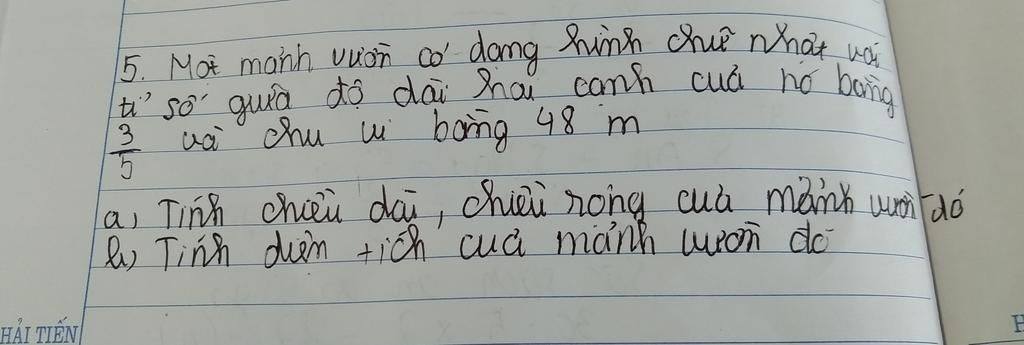 5. Một mảnh vườn có dạng hình chữ nhật với
tỉ số giữa độ dài hai cạnh của nó bằng
3/5 và chu vi bằng 48 m
a) Tính chiều dài, chiều rộng của mảnh vườn đó
b) Tính diện tích của mảnh vườn đó
HẢI TIẾN
H